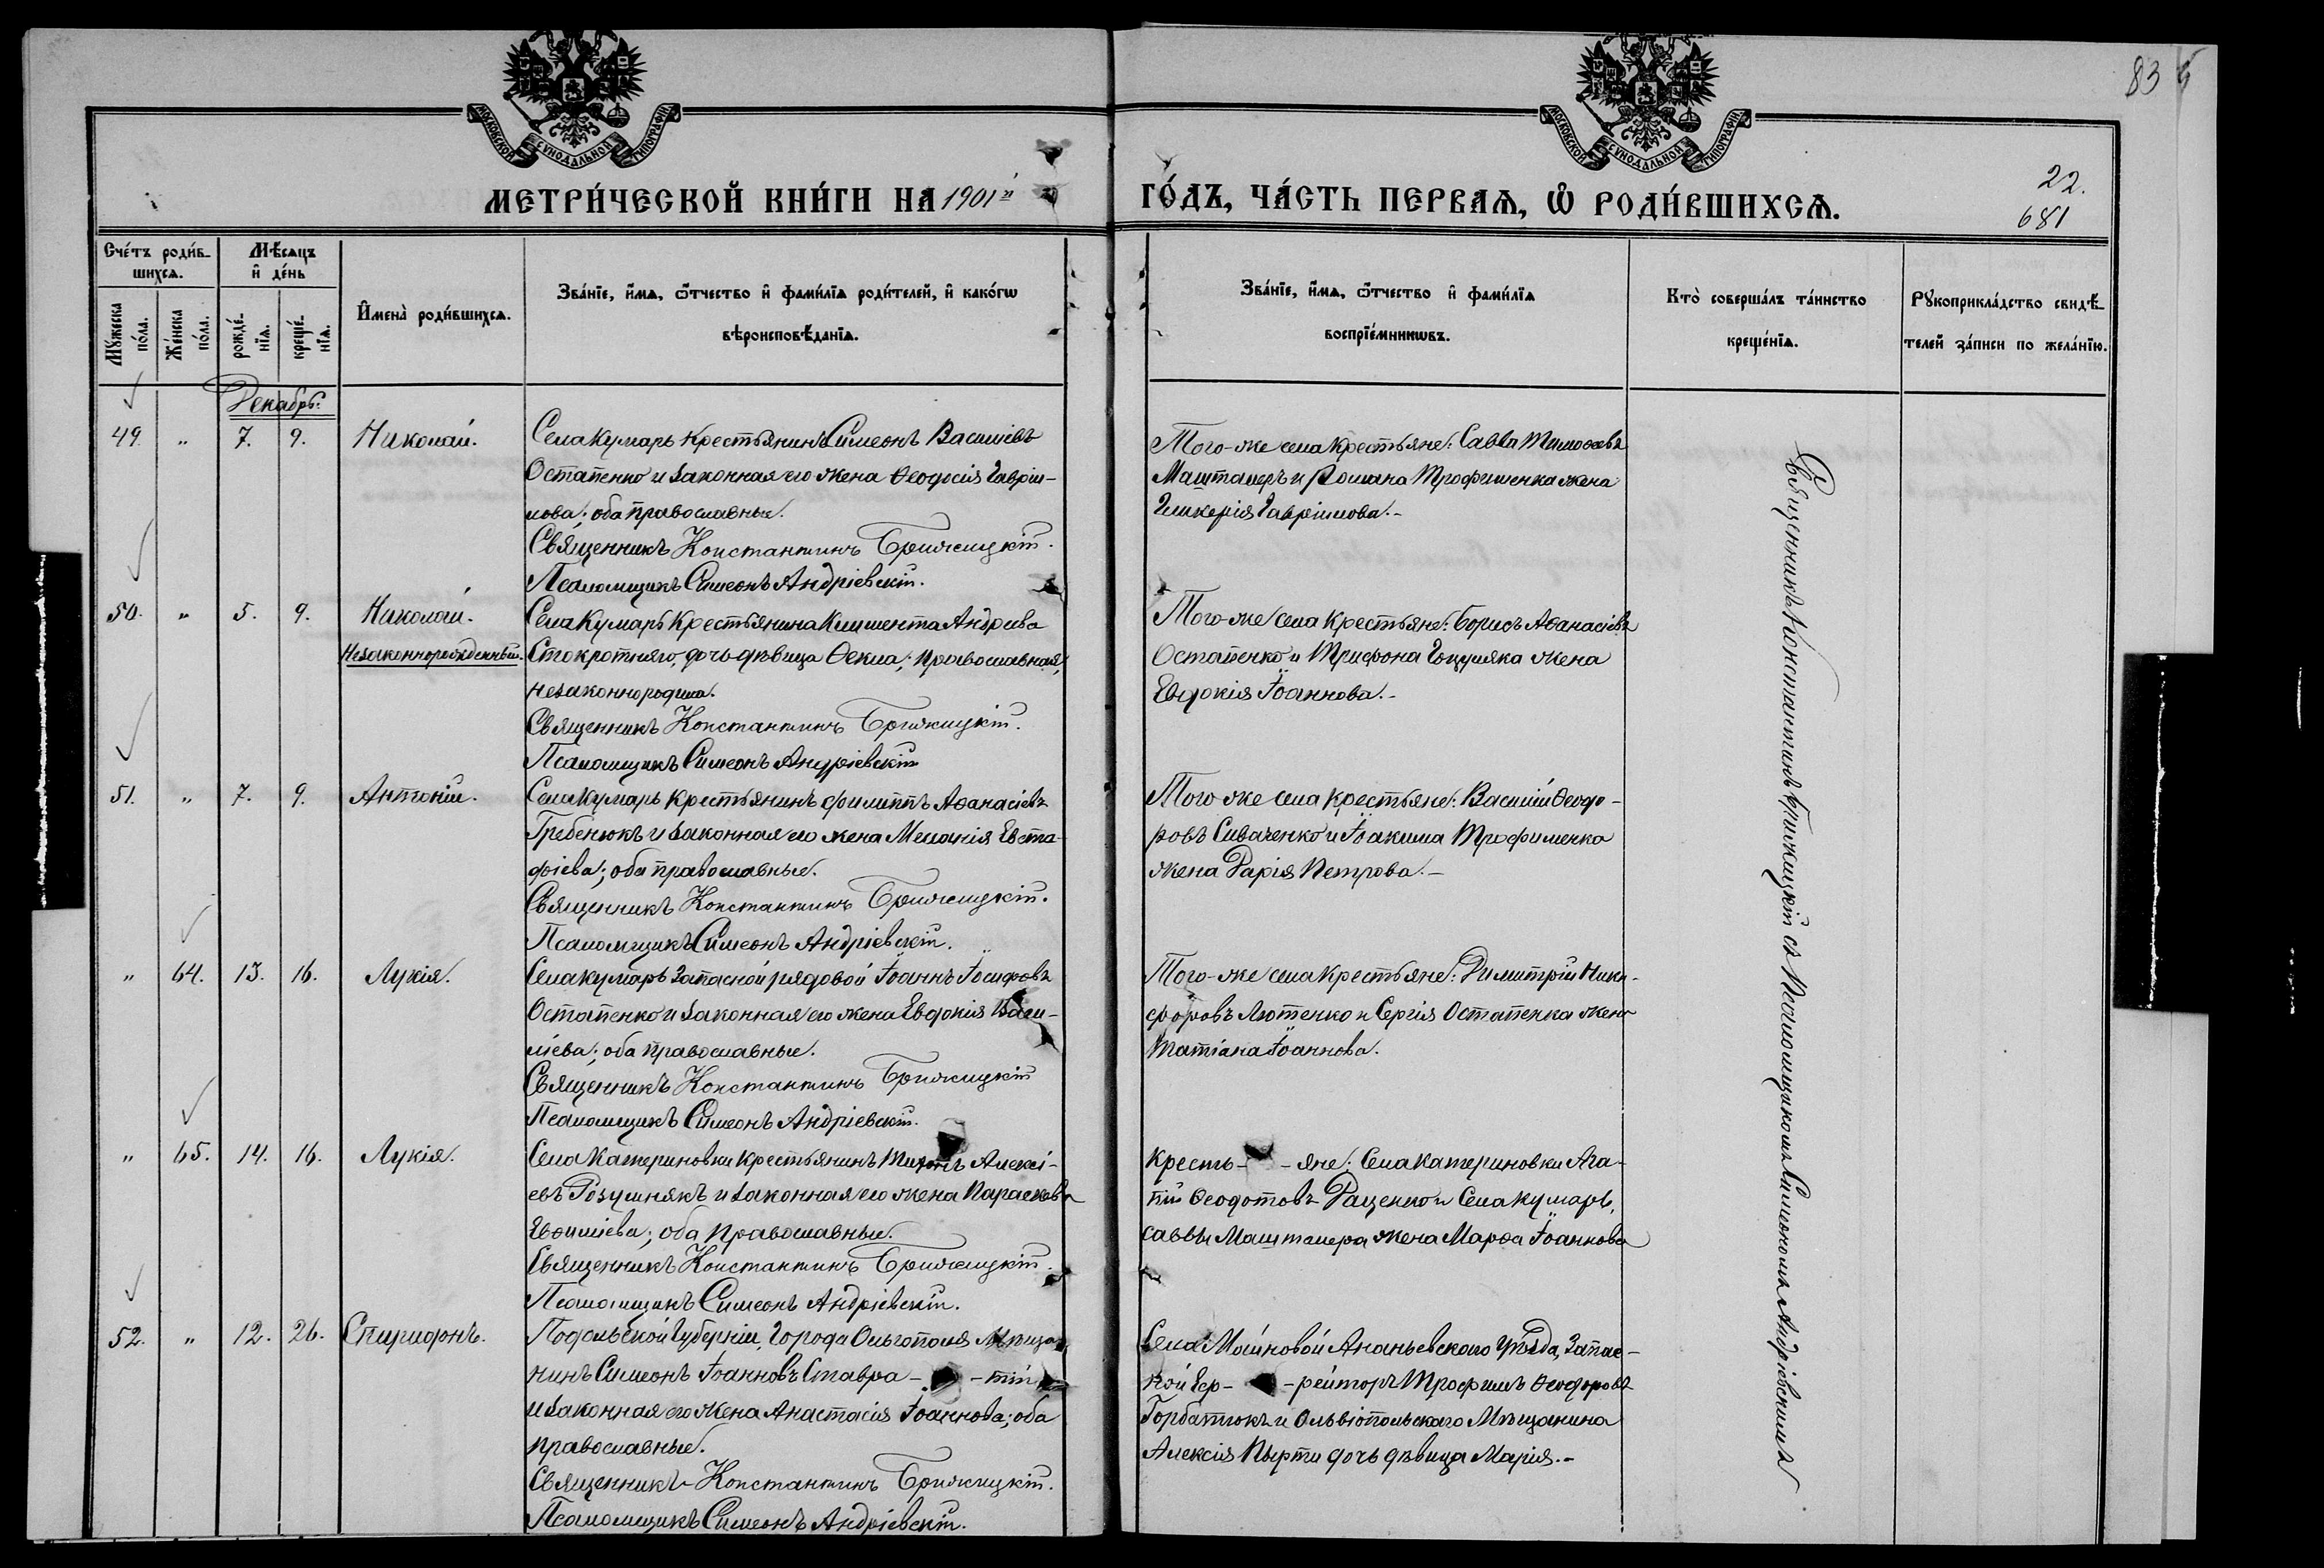 83
МОСКОВСКОЙ СУНОДАЛЬНОЙ ТИПОГРАФІИ
МОСКОВСКОЙ СУНОДАЛЬНОЙ ТИПОГРАФІИ
22.
681
МЕТРИ́ЧЕСКОЙ КНИ́ГИ НА 1901й
ГО́ДЪ, ЧА́СТЬ ПЕРВАѦ, Ѡ҆ РОДИ́ВШИХСѦ.
Сче́тъ роди́в-
шихсѧ.
Мѣсѧцъ
и҆ де́нь
Мꙋжеска
по́ла.
Же́нска
по́ла.
рожде́-
нїѧ.
креще́-
нїѧ.
И҆мена̀ роди́вшихсѧ.
Зва́нїе, и҆́мѧ, ѻ҆́тчество и҆ фами́лїѧ роди́телей, и҆ како́гѡ
вѣроисповѣ́данїѧ.
Зва́нїе, и҆́мѧ, ѻ҆́тчество и҆ фами́лїѧ
воспрїе́мникѡвъ.
Кто̀ соверша́лъ та́инство
креще́нїѧ.
Рꙋкоприкла́дство свидѣ́-
телей за́писи по жела́нїю.
Декабрь.
49. " 7. 9. Николай.
Села Кумарь крестьянинъ Симеонъ Василіевъ
Остапенко и законная его жена Ѳеодосія Гавріи-
лова; оба православные.
Священникъ Константинъ Бржицкій.
Псаломщикъ Симеонъ Андріевскій.
Того-же села крестьяне: Савва Тимоѳеевъ
Машталеръ и Романа Трофименка жена
Гликерія Гавріилова.-
50. " 5. 9. Николай.
Незаконнорожденный.
Села Кумарь крестьянина Климента Андреева
Стокротняго, дочь-дѣвица Ѳекла; православная,
незаконнородила.
Священникъ Константинъ Бржицкій.
Псаломщикъ Симеонъ Андріевскій
Того-же села крестьяне: Борисъ Аѳанасіевъ
Остапенко и Трифона Гоцуляка жена
Евдокія Іоаннова.-
51. " 7. 9. Антоній.
Села Кумарь крестьянинъ Филиппъ Аѳанасіевъ
Гребенюкъ и законная его жена Меланія Евста-
фіева; оба православные.
Священникъ Константинъ Бржицкій.
Псаломщикъ Симеонъ Андріевскій.
Того же села крестьяне: Василій Ѳеодо-
ровъ Сиваченко и Іоакима Трофименка
жена Дарія Петрова.-
" 64. 13. 16. Лукія.
Села Кумарь запасной рядовой Іоаннъ Іосифовъ
Остапенко и законная его жена Евдокія Васи-
ліева; оба православные.
Священникъ Константинъ Бржицкій
Псаломщикъ Симеонъ Андріевскій.
Того-же села крестьяне: Димитрій Ники-
форовъ Лютенко и Сергія Остапенка жена
Татіана Іоаннова.
" 65. 14. 16. Лукія.
Села Катериновки крестьянинъ Тихонъ Алексі-
евъ Розушнякъ и законная его жена Параскева
Евѳиміева; оба православные.
Священникъ Константинъ Бржицкій.
Псаломщикъ Симеонъ Андріевскій.
Кресть- -яне: Села Катериновки Ага-
пій Ѳеодотовъ Раценко и Села Кумарь,
Саввы Машталера жена Марѳа Іоаннова
52. " 12. 26. Спиридонъ.
Подольской губерніи, города Ольгополя мѣща-
нинъ Симеонъ Іоанновъ Ставра- -тій
и законная его жена Анастасія Іоаннова; оба
православные.
Священникъ Константинъ Бржицкій.
Псаломщикъ Симеонъ Андріевскій.
Села Мойновой Ананьевскаго уѣзда, запас-
ной Еф- -рейторъ Трофимъ Ѳеодоровъ
Горбатюкъ и Ольвіопольскаго мѣщанина
Алексія Пырти дочь дѣвица Марія.-
Священникъ Константинъ Бржицкій съ Псаломщикомъ Симеономъ Андріевскимъ